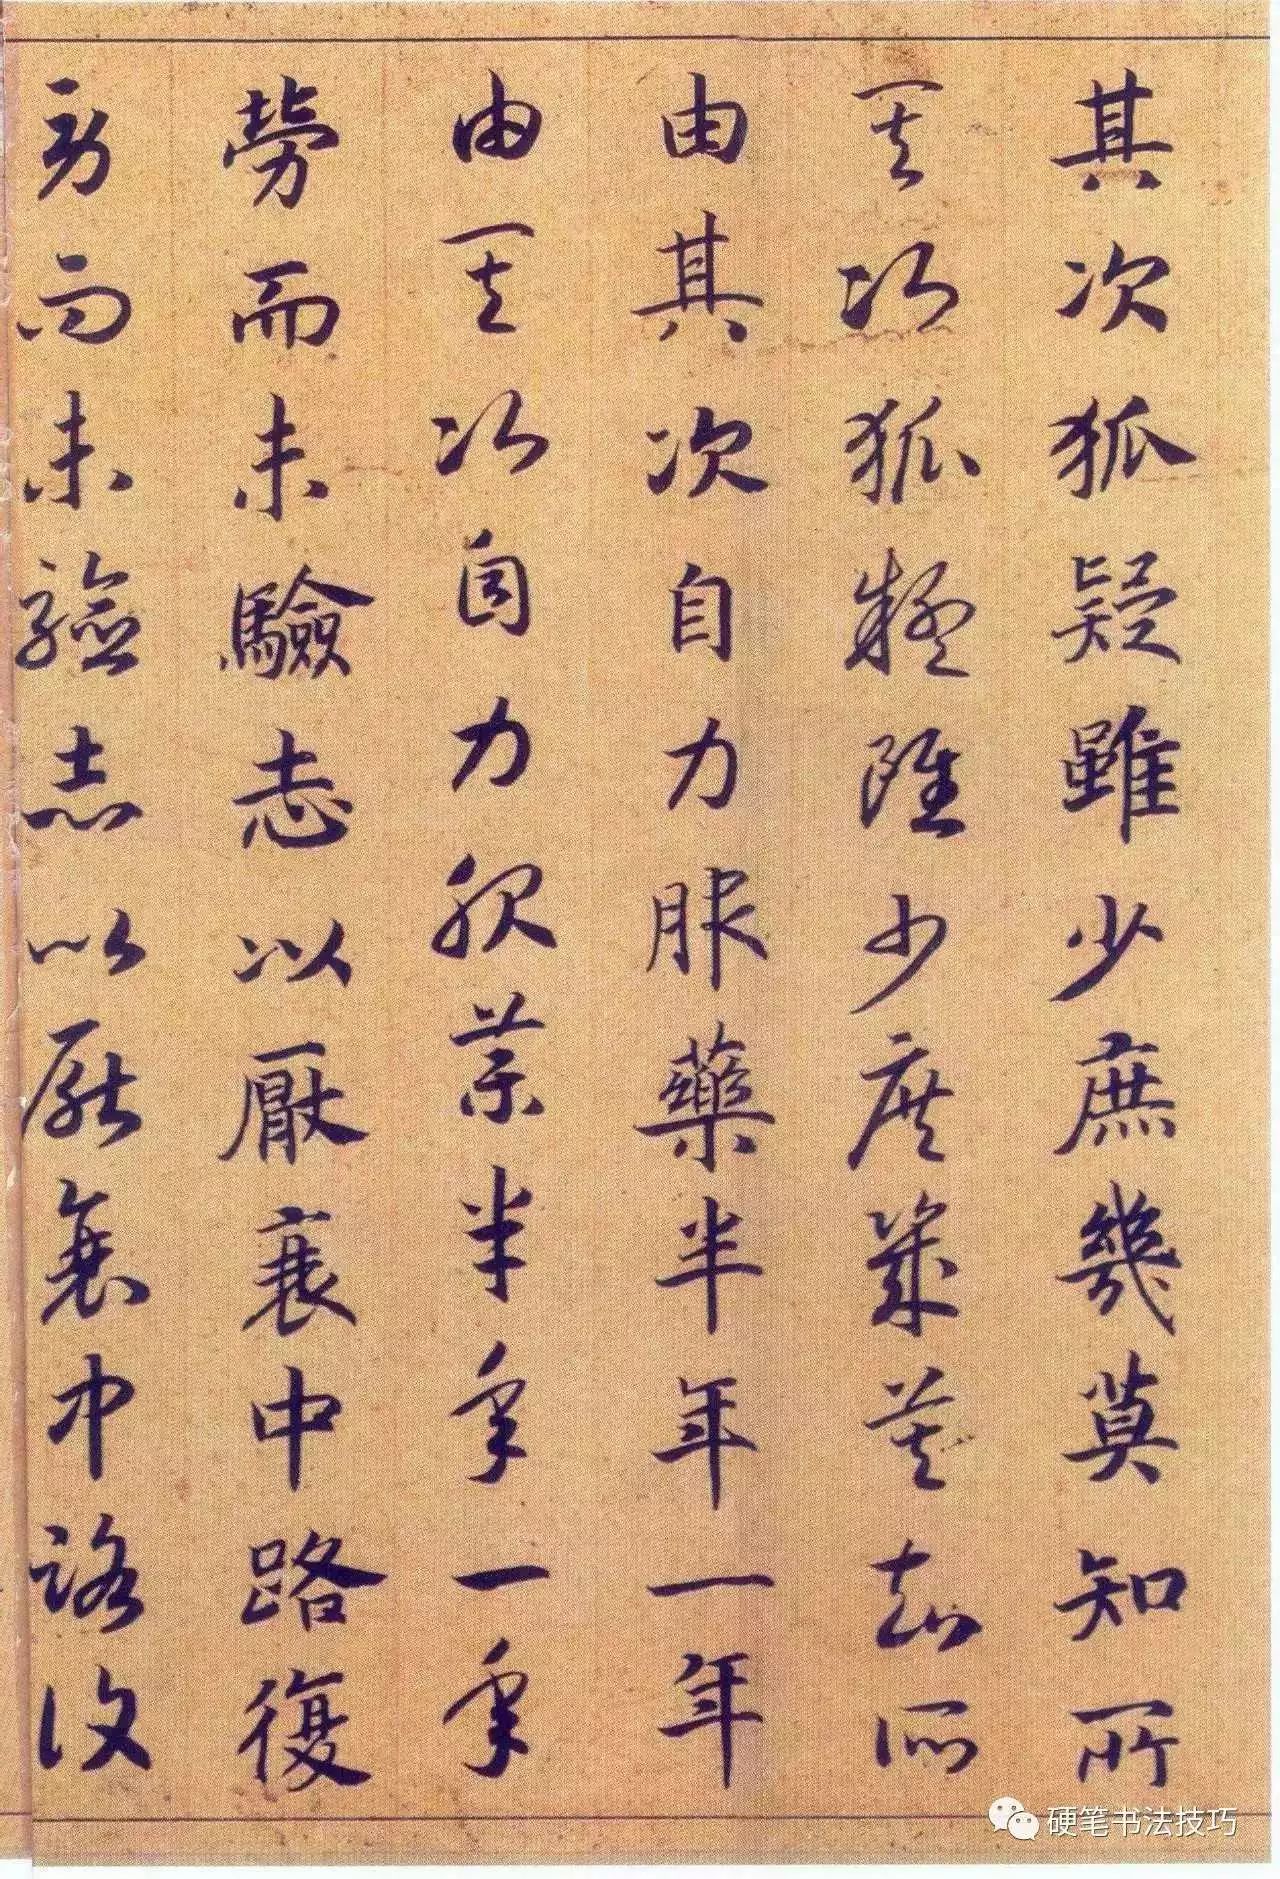 其次狐疑雖少庶幾莫知所
其次狐疑雖少庶幾莫知所
由其次自力服藥半年一年
由其次自力服藥半年一年
勞而未驗志以厭衰中路復
勞而未驗志以厭衰中路復
硬笔书法技巧